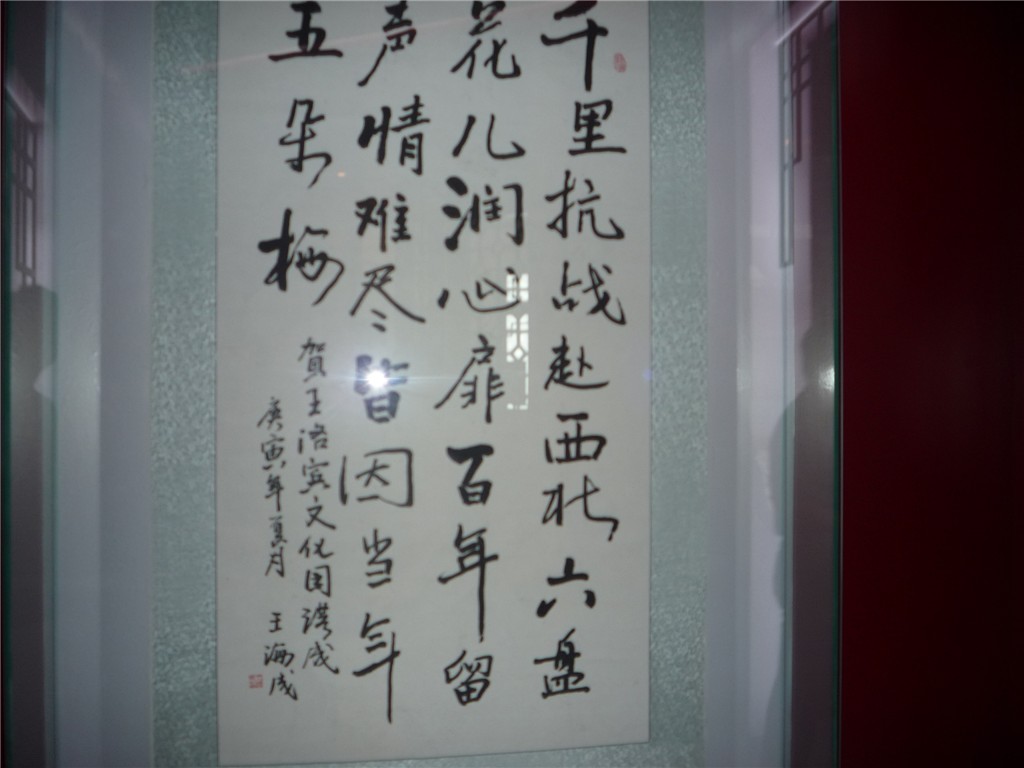 千里抗战赴西北六盘
花儿润心扉百年留
声情难尽皆因当年
五朵梅
贺王洛宾文化园落成
庚寅年夏月 王海成